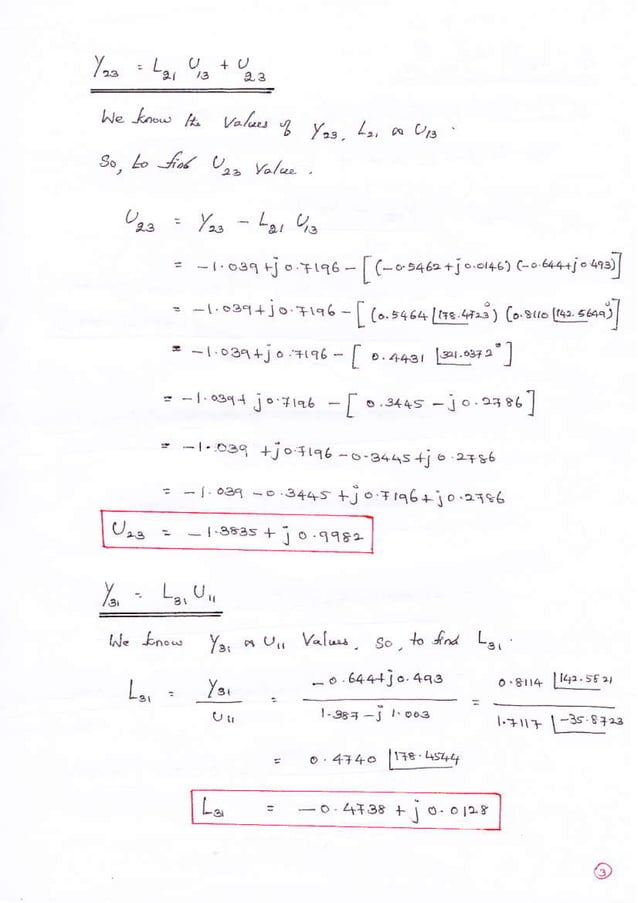 Y₂₃ = L₂₁ U₁₃ + U₂₃
We know the values of Y₂₃, L₂₁ & U₁₃.
So, to find U₂₃ value.
U₂₃ = Y₂₃ - L₂₁ U₁₃
= -1.039 + j 0.7196 - [(-0.5462 + j 0.0146) (-0.644 + j 0.493)]
= -1.039 + j 0.7196 - [(0.5464 ∠178.4723°) (0.8110 ∠142.5649°)]
= -1.039 + j 0.7196 - [0.4431 ∠321.0372°]
= -1.039 + j 0.7196 - [0.3445 - j 0.2786]
= -1.039 + j 0.7196 - 0.3445 + j 0.2786
= -1.039 - 0.3445 + j 0.7196 + j 0.2786
U₂₃ = -1.3835 + j 0.9982
Y₃₁ = L₃₁ U₁₁
We know Y₃₁ & U₁₁ Values. So, to find L₃₁.
L₃₁ = Y₃₁ / U₁₁ = -0.644 + j 0.493 / 1.387 - j 1.003 = 0.8114 ∠142.5521 / 1.7117 ∠-35.8723
= 0.4740 ∠178.4544
L₃₁ = -0.4738 + j 0.0128
3